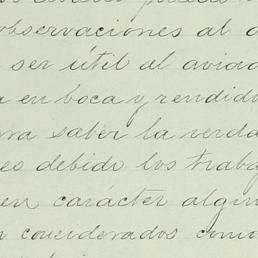 observaciones al
ser útil al aviad
en boca y rendido
saber la verda
es debido los trabaj
en carácter algun
considerados como